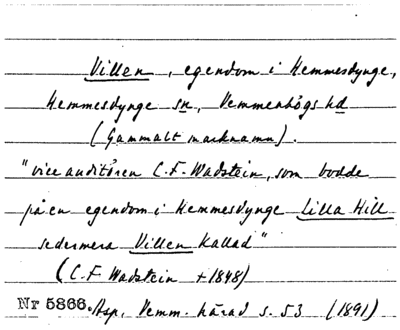 Villen, egendom i Hemmesdynge,
Hemmesdynge sn, Vemmenhögs hd
(Gammalt marknamn).
"vice auditören C.F. Wadstein, som bodde
på en egendom i Hemmesdynge Lilla Hill
sedermera Villen kallad"
(C.F. Wadstein +1848)
Nr 5866. Asp, Vemm. härad s. 53 (1891)